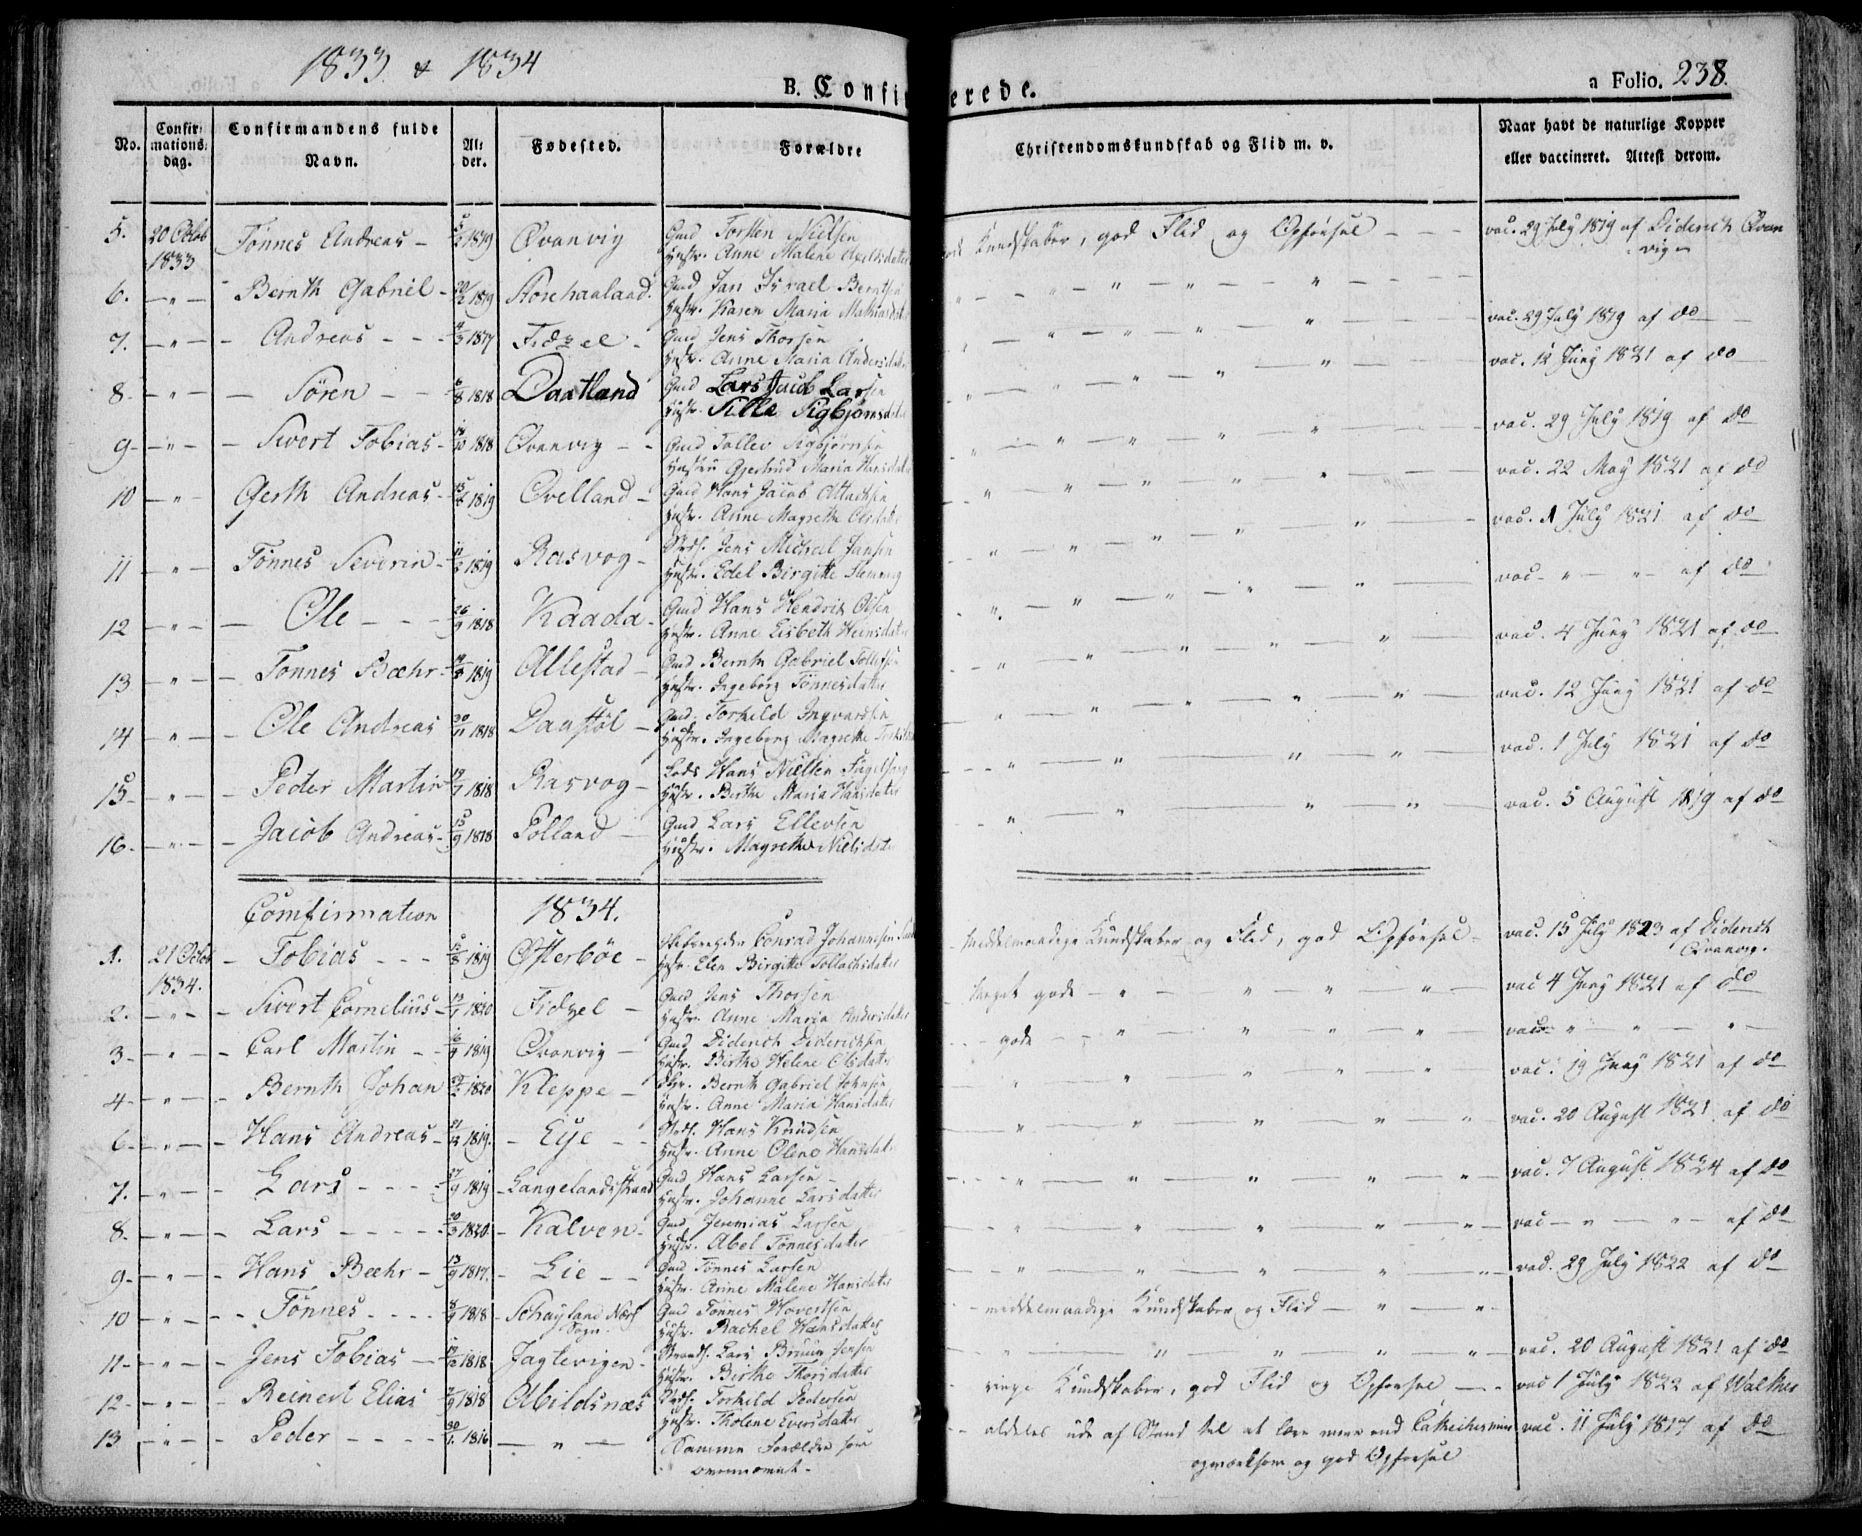 1833 & 1834
B. Confirmerede.
a Folio. 238.
No.
Confirmations dag.
Confirmandens fulde Navn.
Alder.
Fødested.
Forældre
Christendomskundskab og Flid m. v.
Naar havt de naturlige Kopper eller vaccineret. Attest derom.
5. 20 Octob 1833 Tønnes Andreas 1819 Qvanvig Gmd Torsten Nielsen
Hustr. Anne Malene
Kundskaber, god Flid og Opførsel vac. 29 July 1819 af Diderich Qvanvig
6. Bernth Gabriel 1819 Gmd Jan Israel Berntsen
Hustr. Karen Maria
vac. 29 July 1819 af do
7. Andreas Fidzel Gmd Jens Thorsen
Hustr. Anne Maria Andersdatter
vac. 12 Juny 1821 af do
8 Søren 1818 Daatland Gmd Lars Jacob Larsen
Hustr. Sille Sigbjørnsdatter
vac. 29 July 1819 af do
9 Sivert Tobias 1818 Qvanvig Gmd Tollev Sigbjørnsen
Hustru Gjertrud Maria Hansdatter
vac. 22 May 1821 af do
10 Gerth Andreas 1819 Qvelland Gmd Hans Jacob
Hustr. Anne Magrethe
vac. 1 July 1821 af do
11 Tønnes Severin 1819 Rasvog Jens Michael Jansen
Hustr. Edel Birgitte Flemmig
vac. " " af do
12 Ole 26/9 1818 Kaada Gmd Hans Hendrik Olsen
Hustr. Anne Lisbeth
vac. 4 Juny 1821 af do
13 Tønnes Bæhr 1819 Ollestad Gmd Bernth Gabriel Tollefsen
Hustr. Ingeborg Tønnesdatter
vac. 12 Juny 1821 af do
14 Ole Andreas 30/11 1818 Danstøl Gmd. Torkild Ingvardsen
Hustr. Ingeborg Magrethe
vac. 1 July 1821 af do
15 Peder Martin 1818 Rasvog Lods Hans Nielsen
Hustr. Birthe Maria Hansdatter
vac. 5 August 1819 af do
16. Jacob Andreas 1818 Polland Gmd Lars Ellevsen
Hustr. Magrethe Nielsdatter
Comfirmation 1834.
1. 21 Octob 1834. Tobias 1819 Østerbøe Conrad Johannesen
Hustr. Elen Birgitte Tollachsdatter
Meddelmaadige Kundskaber og Flid, god Opførsel vac. 15 July 1823 af Diderich Qvanvig.
2. Sivert Cornelius 1820 Fidzel Gmd Jens Thorsen
Hustr. Anne Maria Andersdatter
meget gode vac 4 Juny 1821 af do
3 Carl Martin 1819 Qvanvig Gmd Diderich Diderichsen
Hustr. Birthe Helene Olsdatter
gode vac. " " "
4 Bernth Johan 1820 Kleppe Bernth Gabriel Johnsen
Hustr. Anne Maria Hansdatter
vac. 19 Juny 1821 af do
6 Hans Andreas 21/12 1819. Eye Hans Knudsen
Hustr. Anne Olene Hansdatter
vac. 20 August 1821 af do
7. Lars 1819 Langelandsstrand Gmd Hans Larsen
Hustr. Johanne Larsdatter
vac. 7 August 1824 af do
8. Lars 1820. Kalven Gmd Jeremias Larsen
Hustr. Abel Tønnesdatter
vac " " af do
9 Hans Bæhr 1817. Lie Gmd Tønnes Larsen
Hustr. Anne Malene Hansdatter
vac. 29 July 1822 af do
10 Tønnes 1818 Gmd Tønnes Hovertsen
Sogn. Hustr. Rachel Hansdatter
meddelmaadige Kundskaber og Flid
11 Jens Tobias 1818. Jagtevigen Strands. Lars Bruun Jensen
Hustr. Birthe Thorsdatter
vac. 20 August 1821 af do
12 Reinert Elias 1818 Abildsnæs Torkild Pedersen
Hustr. Tholene Eversdatter
ringe Kundskaber, god Flid og Opførsel vac 1 July 1822 af Walker
13 Peder 30/1. 1816 " Samme Forældre som ovennævnt
aldeles ude af Stand til at lære mere end Cathechismus
opmærksom og god Opførsel
vac. 11 July 1817 af do